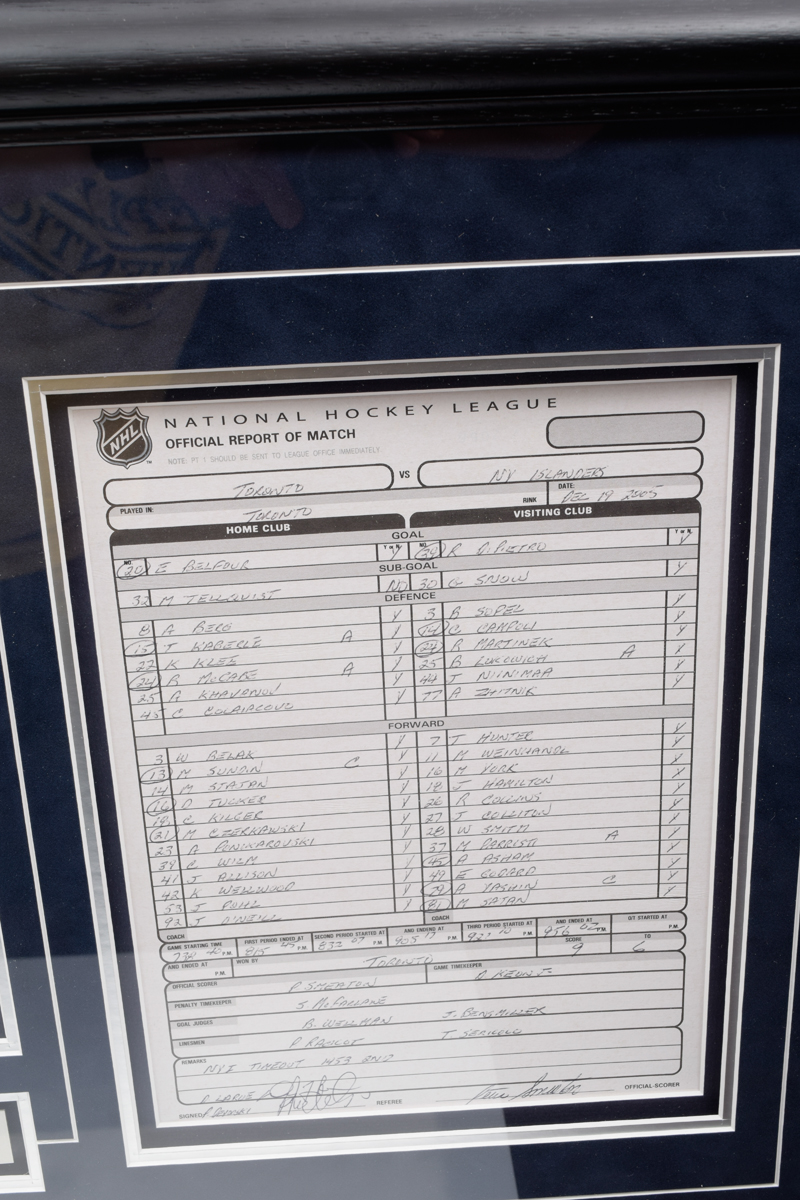 NHL
NATIONAL HOCKEY LEAGUE
OFFICIAL REPORT OF MATCH
NOTE: PT 1 SHOULD BE SENT TO LEAGUE OFFICE IMMEDIATELY
TORONTO VS NY ISLANDERS
PLAYED IN: TORONTO RINK DATE: DEC 19 2005
HOME CLUB VISITING CLUB
GOAL
NO. 20 E BELFOUR Y or N Y NO. 39 R DIPIETRO Y or N Y
SUB-GOAL
32 M TELLQVIST NO 30 G SNOW Y
DEFENCE
8 A BERG Y 3 B SOPEL Y
15 T KABERLE A Y 14 C CAMPOLI Y
22 K KLEE Y 24 R MARTINEK Y
24 B McCABE A Y 25 B LUKOWICH A Y
25 A KHAVANOV Y 44 J NIINIMAA Y
45 C COLAIACOVO Y 77 A ZHITNIK Y
FORWARD
3 W BELAK Y 7 T HUNTER Y
13 M SUNDIN C Y 11 M WEINHANDL Y
14 M STAJAN Y 16 M YORK Y
16 D TUCKER Y 18 J HAMILTON Y
18 C KILGER Y 26 R COLLINS Y
21 M CZERKAWSKI Y 27 J COLLITON Y
23 A PONIKAROVSKI Y 28 W SMITH Y
39 C WILM Y 37 M PARRISH A Y
41 J ALLISON Y 45 A ASHAM Y
42 K WELLWOOD Y 49 E GODARD Y
53 J POHL Y 79 A YASHIN C Y
92 J O'NEILL Y 81 M SATAN Y
COACH COACH
GAME STARTING TIME P.M. FIRST PERIOD ENDED AT 815 P.M. SECOND PERIOD STARTED AT 832 07 P.M. AND ENDED AT 905 17 P.M. THIRD PERIOD STARTED AT 922 P.M. AND ENDED AT 956 02 P.M. O/T STARTED AT P.M.
AND ENDED AT P.M. WON BY TORONTO SCORE 9 TO 6
OFFICIAL SCORER P. SMEATON GAME TIMEKEEPER
PENALTY TIMEKEEPER S. McFARLANE
GOAL JUDGES B. WELLMAN J. BENSMILLER
LINESMEN P RACICOT T. SERICOLO
REMARKS
NYI TIMEOUT 1453 2ND
SIGNED REFEREE OFFICIAL-SCORER